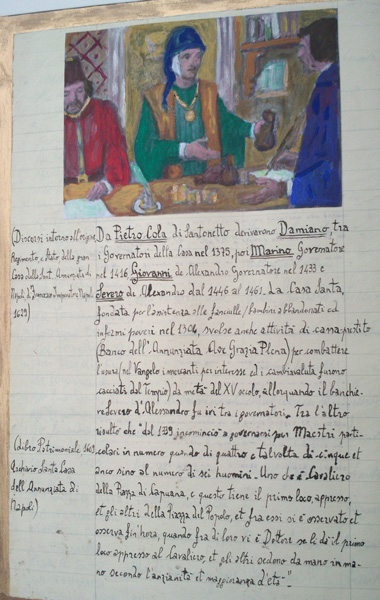 (Discorsi intorno all'origine
Regimento, e stato, della gran
Casa della Sant. Annuntiata di
Napoli, d'Imperato, Napoli
1629)
Da Pietro Cola di Santonetto derivarono Damiano, tra
i Governatori della Casa nel 1375, poi Marino Governatore
nel 1416 Giovanni de Alexandro Governatore nel 1433 e
Severo di Alexandro dal 1446 al 1461. La Casa Santa,
fondata per l'assistenza alle fanciulle/bambini abbandonati ed
infermi poveri nel 1304, svolse anche attività di cassa-prestito
(Banco dell'Annunziata Ave Grazia Plena) per combattere
l'usura (nel Vangelo i mercanti per interesse ed i cambiavalute furono
cacciati dal Tempio) da metà del XV secolo, allorquando il banchie-
re Severo d'Alessandro fu in tra i governatori. Tra l'altro
risulta che "dal 1339 incominciò a governarsi per Maestri parti-
colari in numero quando di quattro e talvolta di cinque et
anco sino al numero di sei huomini. Uno de è Cavaliero
della Piazza di Capuana, e questo tiene il primo loco, appresso,
et gli altri della Piazza del Popolo, et fra essi si è osservato et
osserva fin hora, quando fra di loro vi è Dottore se li dà il primo
loco appresso al Cavaliero, et gli altri sedono da mano in ma-
no secondo l'anzianità et maggioranza d'età".
(Libro Patrimoniale
Archivio Santa Casa
dell'Annunziata di
Napoli)